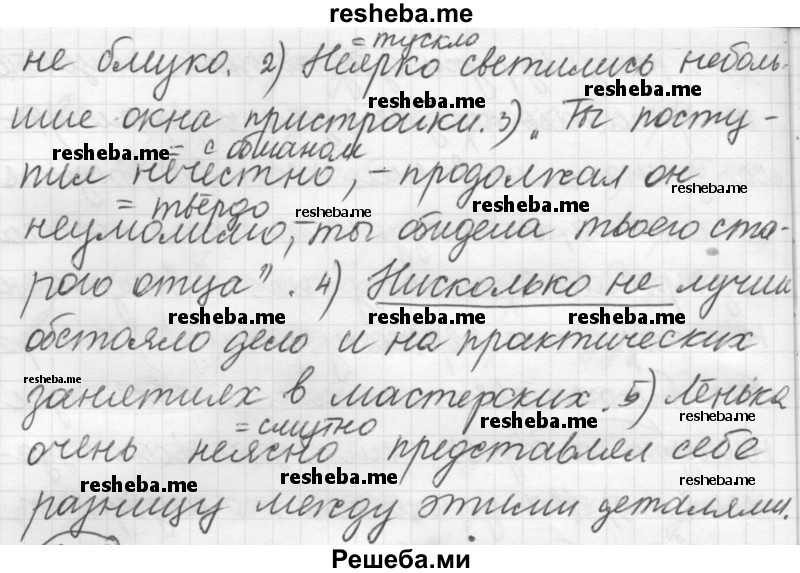 resheba.me
= тускло
не близко. 2) Неярко светились неболь-
resheba.me resheba.me
шие окна пристройки. 3) „Ты посту-
resheba.me = с обманом
пил нечестно, – продолжал он
resheba.me
= твёрдо resheba.me resheba.me
неумолимо, – ты обидела твоего ста-
рого отца". 4) Нисколько не лучше
resheba.me resheba.me resheba.me
обстояло дело и на практических
resheba.me
занятиях в мастерских. 5) Лёнька
= смутно resheba.me resheba.me
очень неясно представлял себе
resheba.me resheba.me resheba.me
разницу между этими деталями.
Решеба.ми